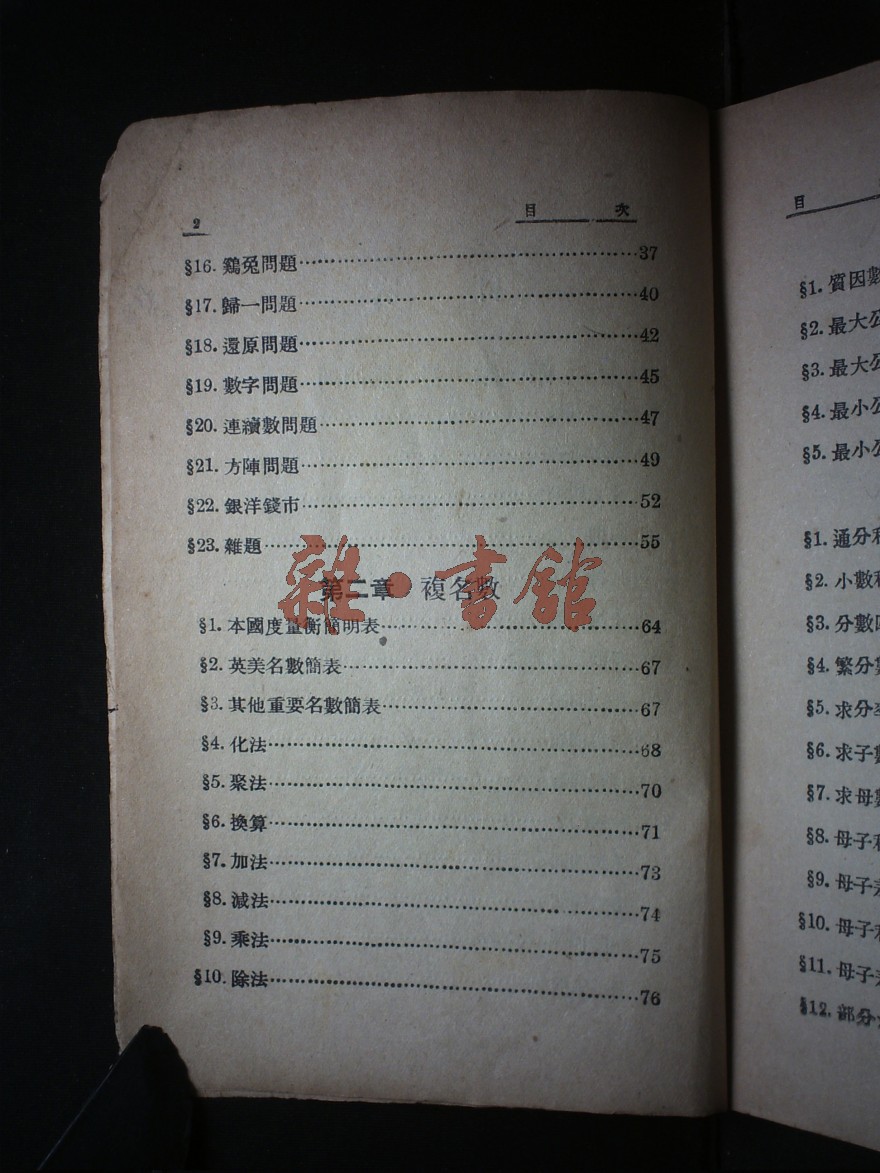 2 目 次
§16. 鷄兔問題……37
§17. 歸一問題……40
§18. 還原問題……42
§19. 數字問題……45
§20. 連續數問題……47
§21. 方陣問題……49
§22. 銀洋錢市……52
§23. 雜題……55
第二章 複名數
§1. 本國度量衡簡明表……64
§2. 英美名數簡表……67
§3. 其他重要名數簡表……67
§4. 化法……68
§5. 聚法……70
§6. 換算……71
§7. 加法……73
§8. 減法……74
§9. 乘法……75
§10. 除法……76
雜·書館
目
§1. 質因數
§2. 最大公
§3. 最大公
§4. 最小公
§5. 最小公
§1. 通分
§2. 小數
§3. 分數
§4. 繁分
§5. 求分
§6. 求子
§7. 求母
§8. 母子
§9. 母子
§10. 母子
§11. 母子
§12. 部分